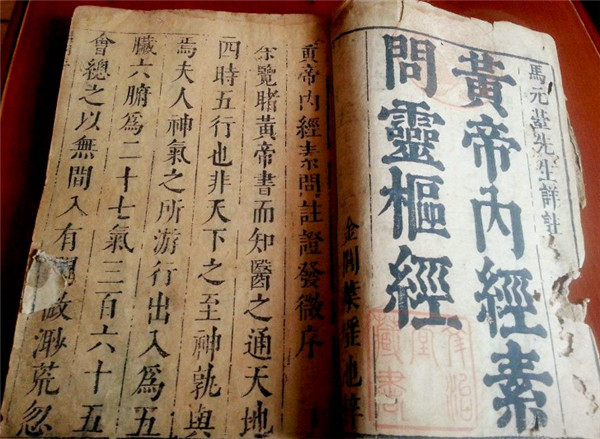 馬元臺先生詳註
黃帝內經素
問靈樞經
金閶葉
藏書
黃帝內經素問註證發微序
余覽睹黃帝書而知醫之通天地
四時五行也非天下之至神孰與
焉夫人神氣之所游行出入爲五
臟六腑爲二十七氣三百六十五
會總之以無間入有間故渺荒忽